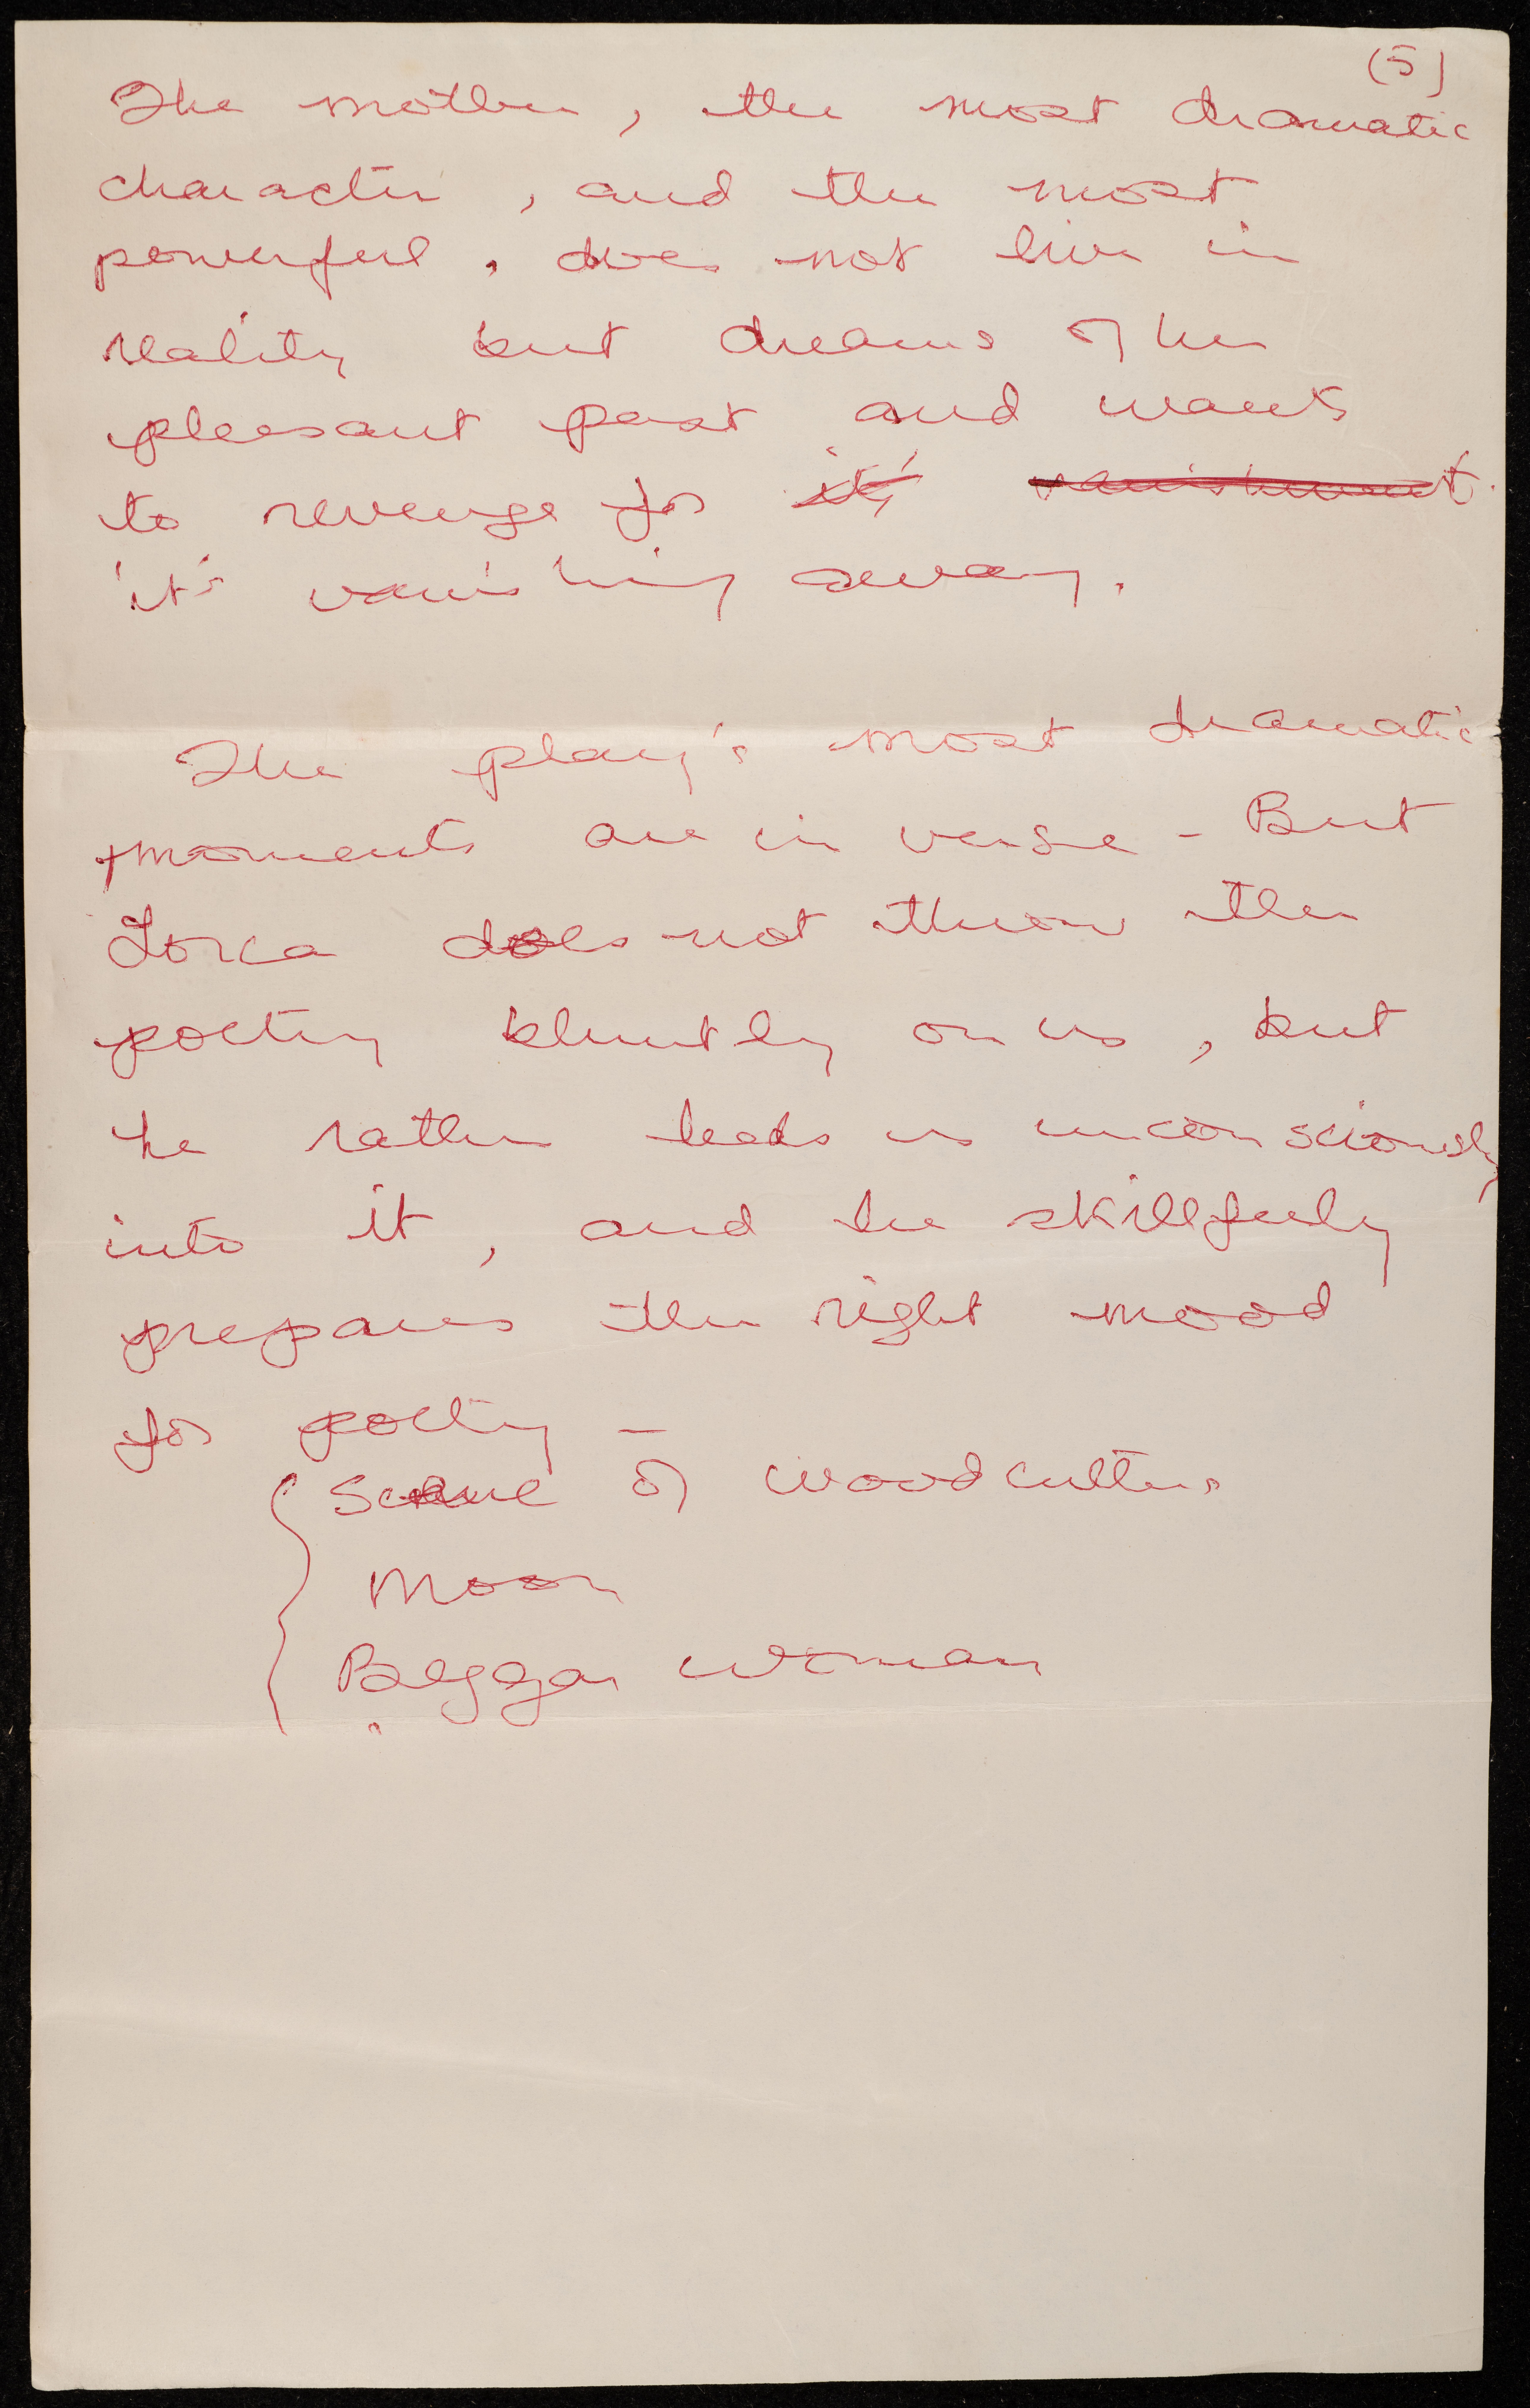 (5)
The mother, the most dramatic
character, and the most
powerful, does not live in
reality but dreams of her
pleasant past and wants
to revenge for it's vanishment.
it's vanishing away.
The play's most dramatic
moments are in verse - But
Lorca does not throw the
poetry bluntly on us, but
he rather leads us unconsciously
into it, and he skillfully
prepares the right mood
for poetry -
Scene of woodcutters
Moon
Beggar woman